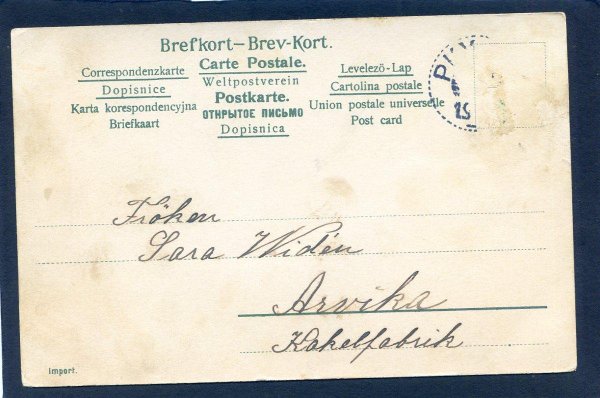 Brefkort—Brev-Kort.
Correspondenzkarte
Dopisnice
Karta korespondencyjna
Briefkaart
Carte Postale.
Weltpostverein
Postkarte.
ОТКРЫТОЕ ПИСЬМО
Dopisnica
Levelező-Lap
Cartolina postale
Union postale universelle
Post card
Fröken
Sara Widén
Arvika
Kakelfabrik
Import.